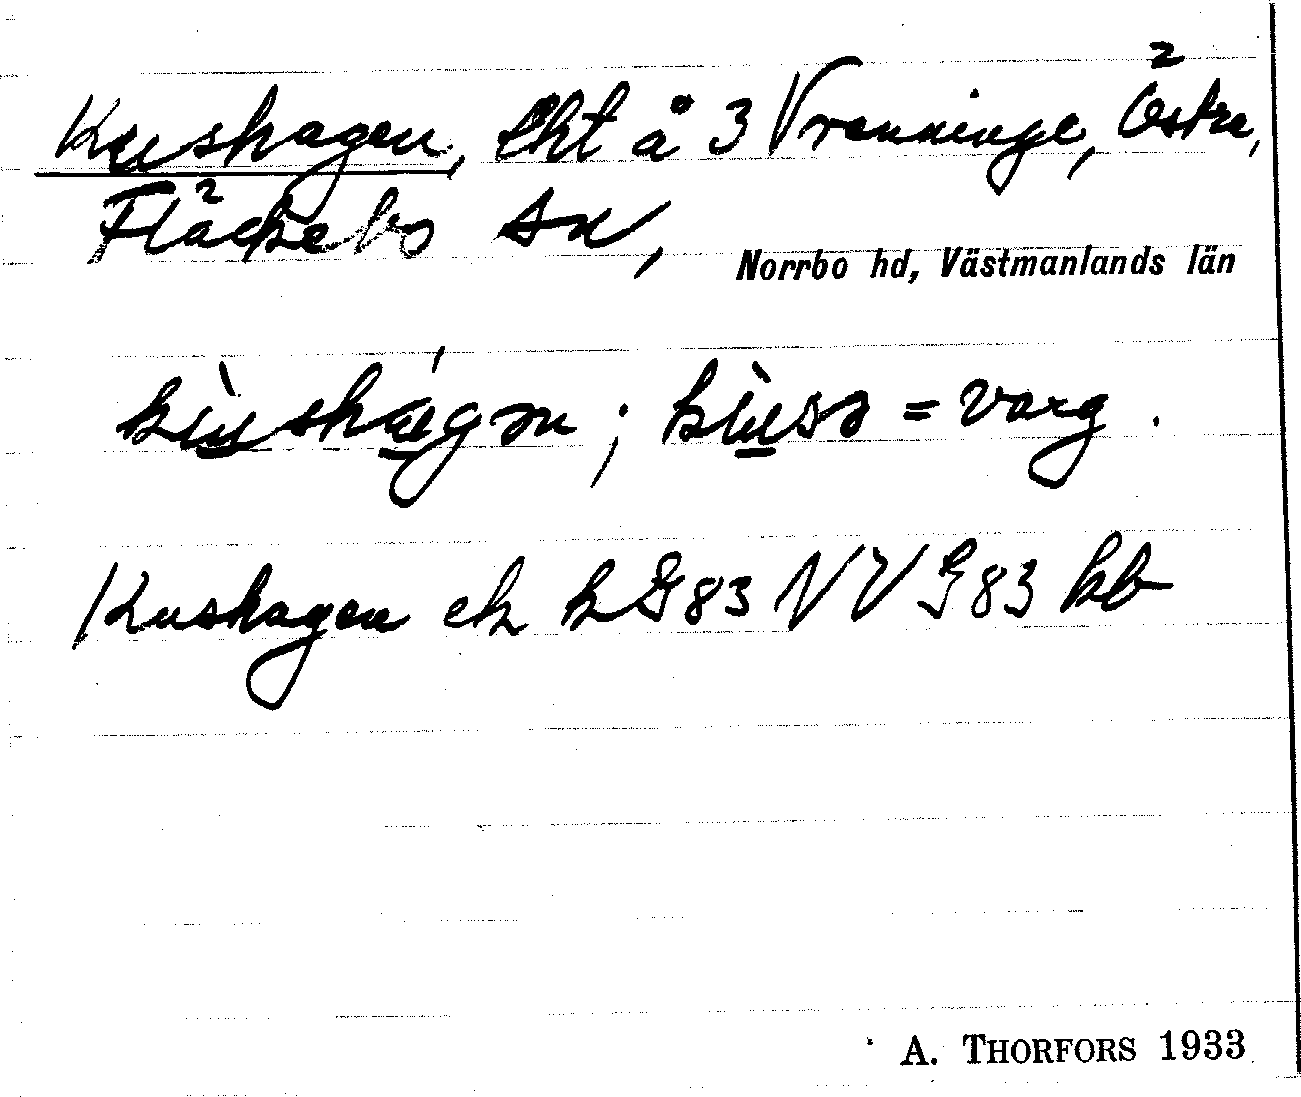 Kushagen, Lht å 3 Vrenninge, Östra,
Fläckebo sn,
Norrbo hd, Västmanlands län
= varg.
Kushagen ek k G 83 NV G 83 kb
A. THORFORS 1933